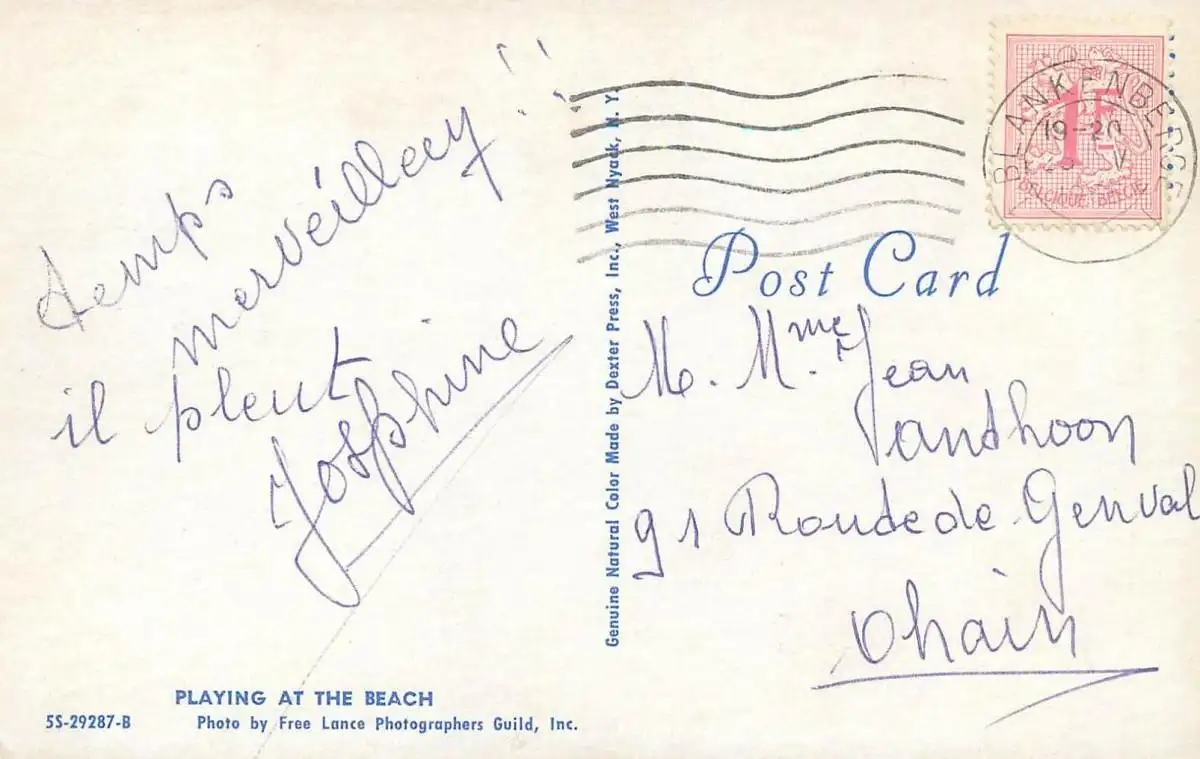 temps
merveilleux !!
il pleut
Josphine
BLANKENBERGE
19-20
V
1F
BELGIQUE-BELGIE
Post Card
M. Mme Jean
Vandhoon
91 Roudede Genval
Ohain
Genuine Natural Color Made by Dexter Press, Inc., West Nyack, N. Y.
PLAYING AT THE BEACH
5S-29287-B Photo by Free Lance Photographers Guild, Inc.